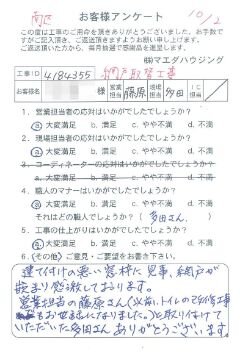 南区
お客様アンケート
10/2
この度は工事のご用命を頂きありがとうございました。お手数で
すがご記入頂き、ご返送頂きますようお願い申し上げます。
ご返送頂いた方から、毎月抽選で感謝品を進呈します。
㈱マエダハウジング
工事ID 4184355 網戸取替工事
お客様名 様 営業担当 藤原 現場担当 多田 工事
1. 営業担当者の応対はいかがでしたでしょうか?
a.大変満足 b.満足 c.やや不満 d.不満
2. 現場担当者の応対はいかがでしたでしょうか?
a.大変満足 b.満足 c.やや不満 d.不満
3. コーディネーターの応対はいかがでしたでしょうか?
a.大変満足 b.満足 c.やや不満 d.不満
4. 職人のマナーはいかがでしたでしょうか?
a.大変満足 b.満足 c.やや不満 d.不満
それはどの職人でしょうか?(多田さん)
5. 工事の仕上がりはいかがでしたでしょうか?
a.大変満足 b.満足 c.やや不満 d.不満
6. (その他)ご意見・ご要望をお書き下さい。
建て付けの悪い窓枠に見事、網戸が
嵌まり感激しております。
営業担当の藤原さん(以前、トイレの改修工事
もお世話になりました。)と取り付けて
いただいた多田さんありがとうございます。